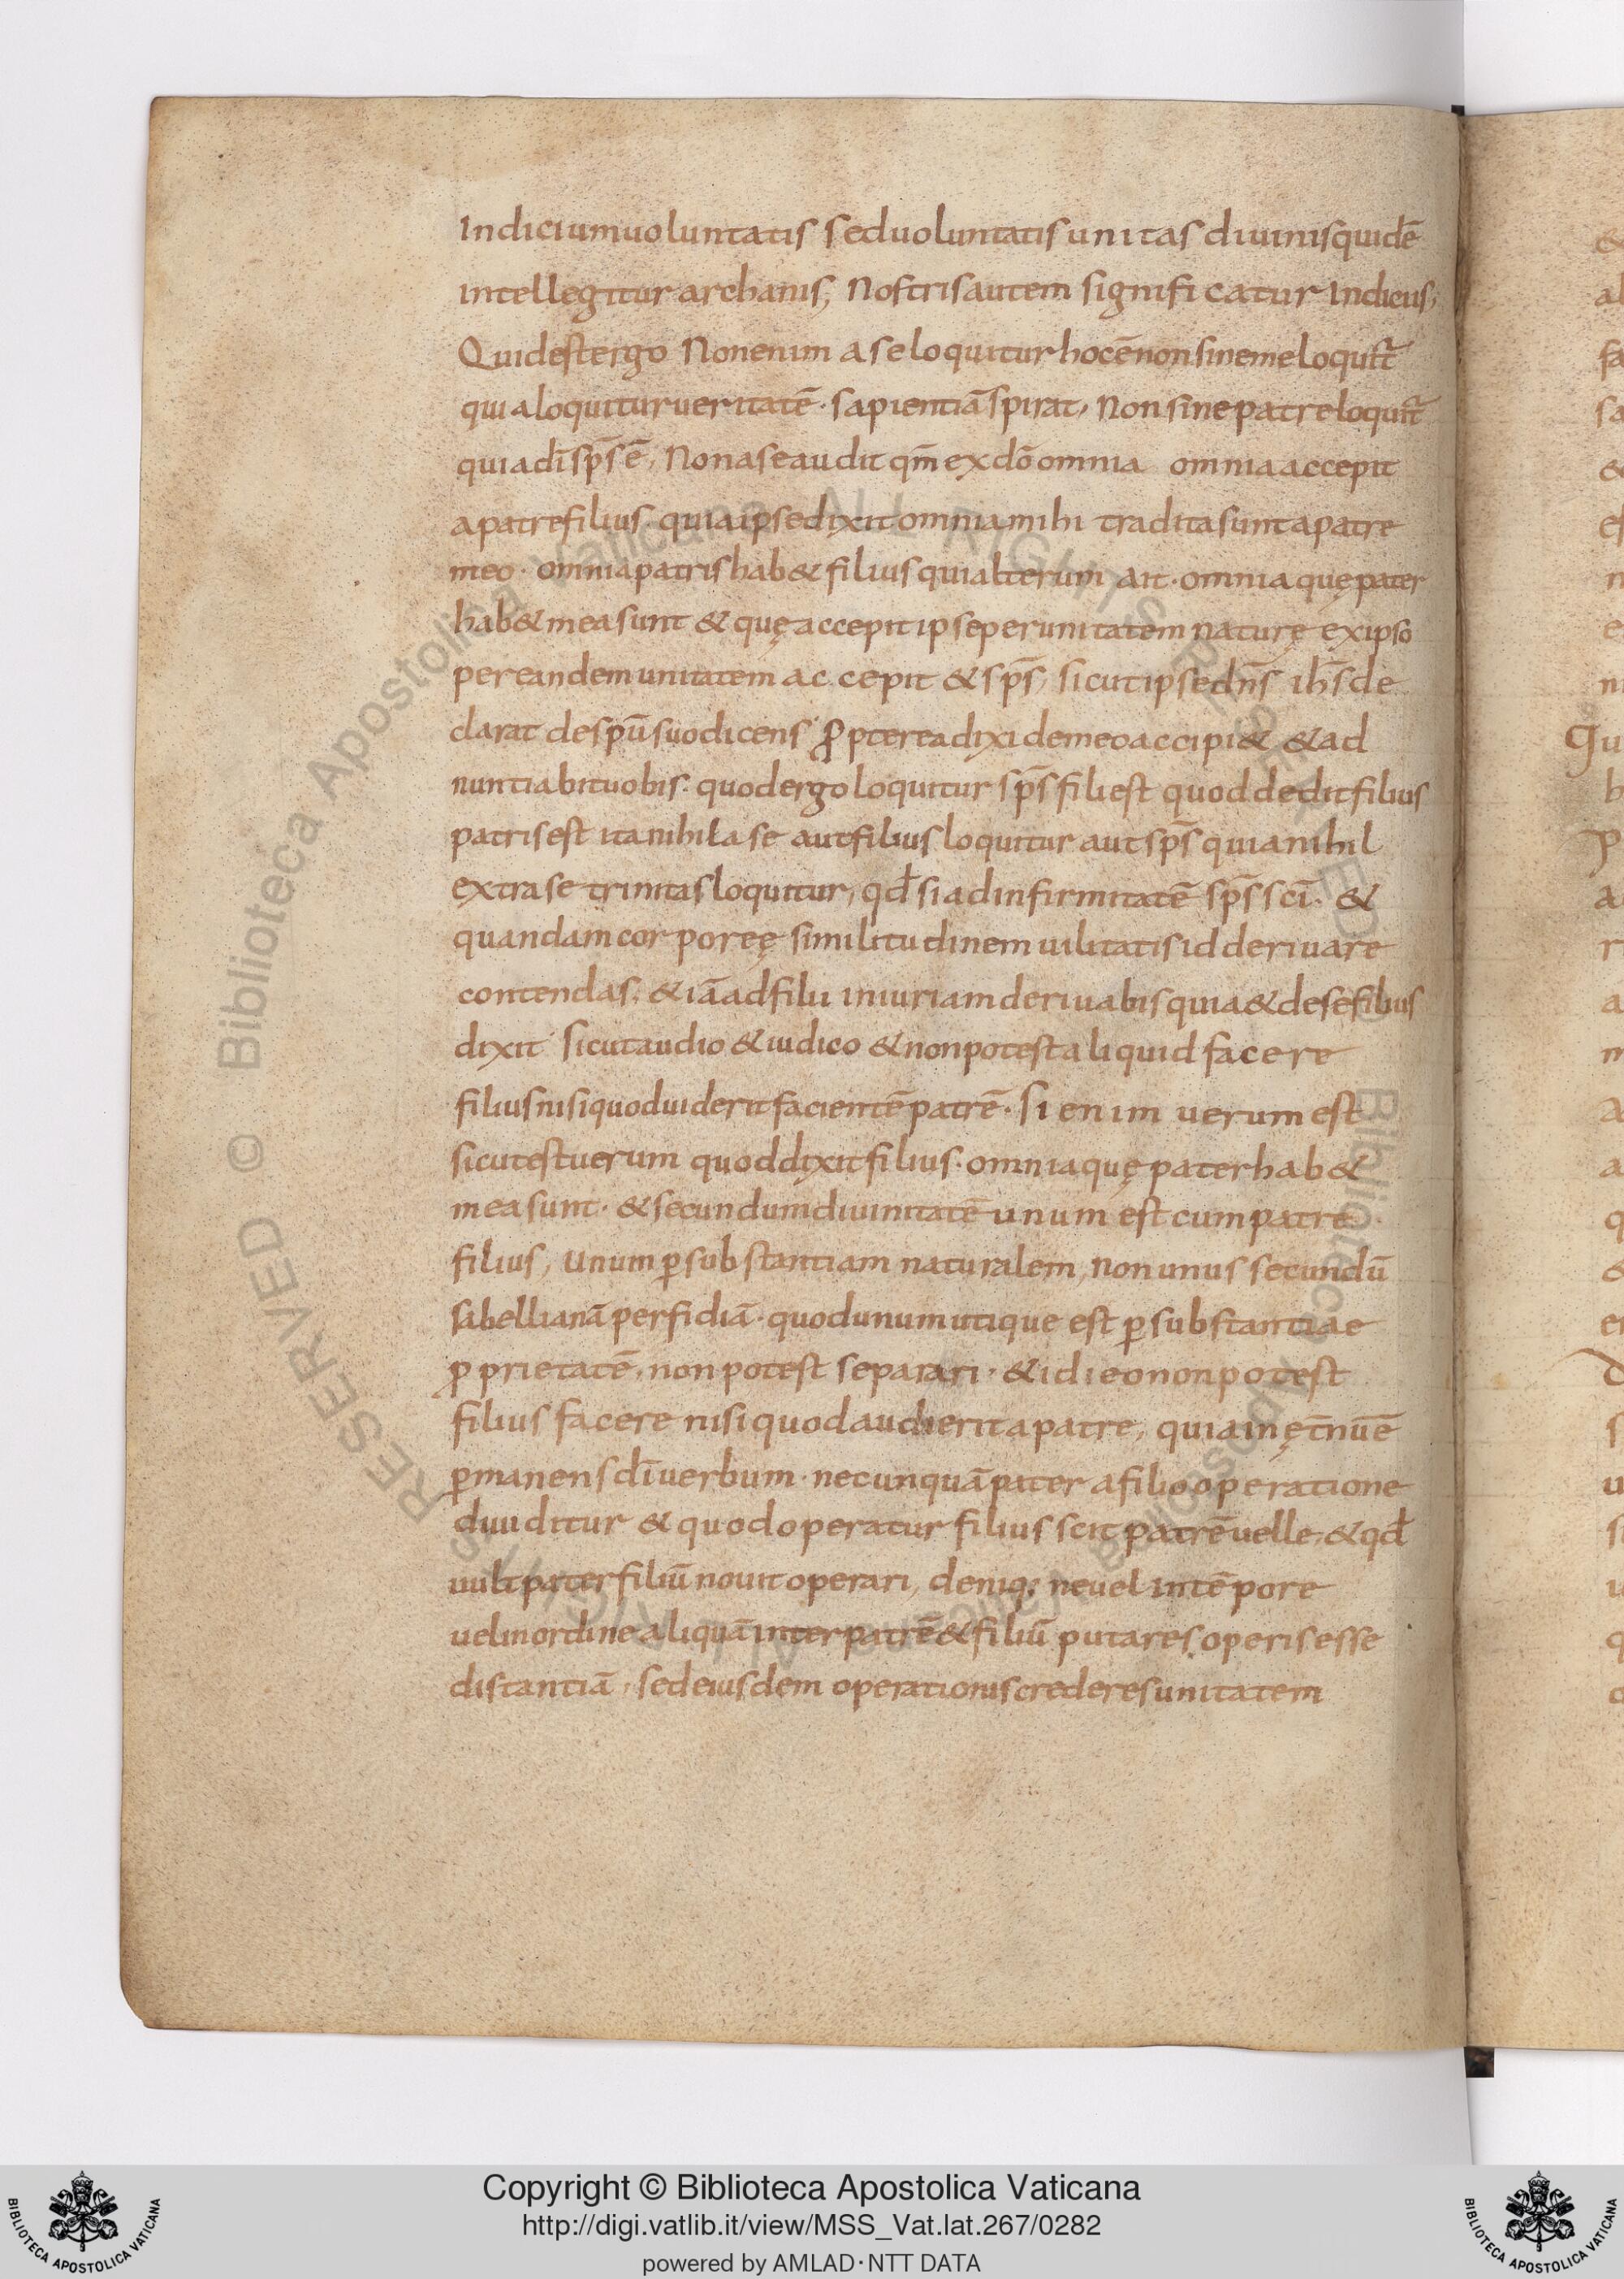 Indicium uoluntatis sed uoluntatis unitas diuinis quidē
intellegitur archanis; Nostris autem significatur Indiciis;
Quid est ergo Non enim a se loquitur hoc ē non sine me loquit̄
quia loquitur ueritatē · sapientiā spirat, Non sine patre loquit̄
quia dī sp̄s ē, Non a se audit qm̄ ex dō omnia omnia accepit
a patre filius, quia ipse dixit omnia mihi tradita sunt a patre
meo · omnia patris hab& filius qui alterum ait · omnia quę pater
hab& mea sunt & quę accepit ipse per unitatem naturę ex ipso
per eandem unitatem accepit & sp̄s, sicut ipse dn̄s ih̄s de
clarat de spū suo dicens ꝓpterea dixi de meo accipi& & ad
nuntiabit uobis · quod ergo loquitur sp̄s fili est quod dedit filius
patris est ita nihil a se aut filius loquitur aut sp̄s quia nihil
extra se trinitas loquitur, qd̄ si ad infirmitatē sp̄s scī · &
quandam corporeę similitudinem uilitatis id deriuare
contendas, & iā ad filii iniuriam deriuabis quia & de se filius
dixit sicut audio & iudico & non potest aliquid facere
filius nisi quod uiderit facientē patrē · si enim uerum est
sicut est uerum quod dixit filius · omnia quę pater hab&
mea sunt · & secundum diuinitatē unum est cum patre
filius, unum ꝑ substantiam naturalem, non unus secundū
sabellianā perfidiā · quod unum utique est ꝑ substantiae
ꝓprietatē, non potest separari · & idieo non potest
filius facere nisi quod audierit a patre, quia in ęt̄nū ē
ꝑmanens dī uerbum · nec unquā pater a filio operatione
diuiditur & quod operatur filius scit patrē uelle, & qd̄
uult pater filiū nouit operari, deniq; ne uel in tēpore
uel in ordine aliquā inter patrē & filiū putares operis esse
distantiā, sed eiusdem operationis crederes unitatem
Copyright © Biblioteca Apostolica Vaticana
http://digi.vatlib.it/view/MSS_Vat.lat.267/0282
powered by AMLAD·NTT DATA